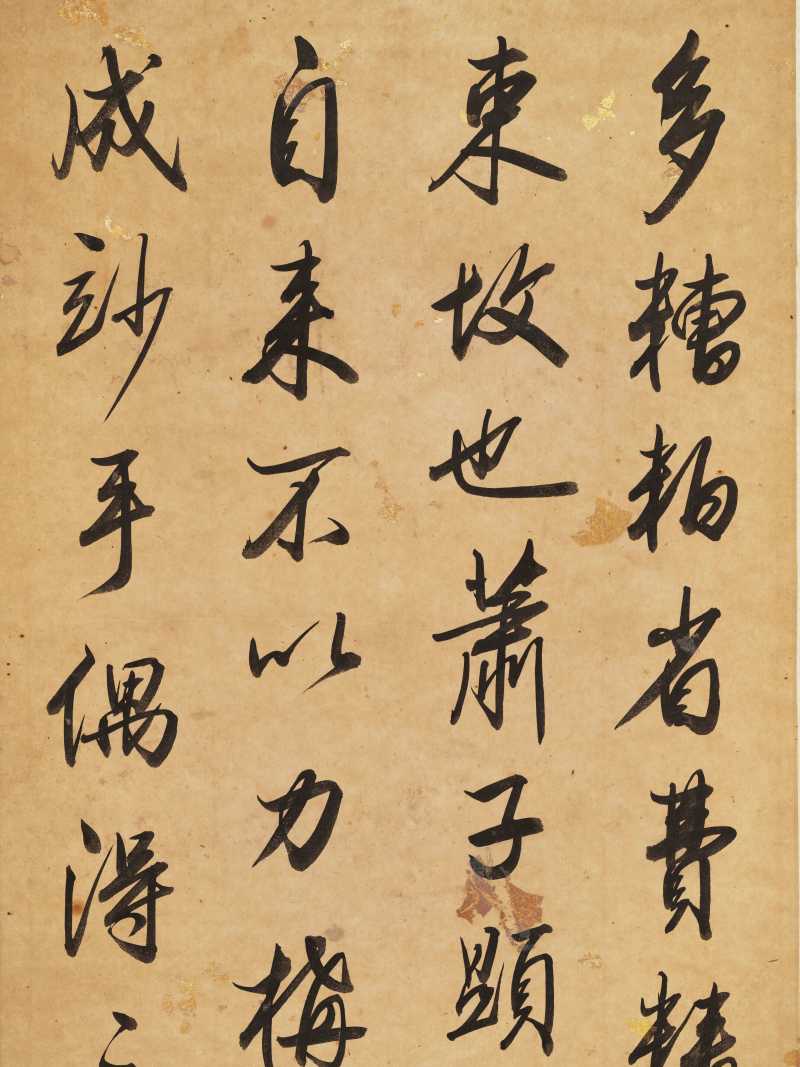 多糟粕省費精
東故也蕭子顯
自来不以力構
成玅手偶得之